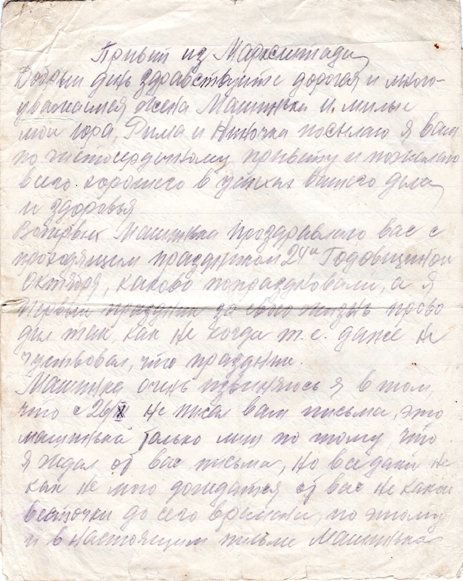 Привет из Марксштадта
Добрый день здравствуйте дорогая и много-
уважаемая жена Машинька и милые
мои Юра, Рима и Ниночка посылаю я вам
по чистосердечному привету и пожелаю
всего хорошего в успехах вашего дела
и здоровья
Вопервых Машинька проздравляю вас с
проходящим праздником 24й Годовщиной
Октября, каково попраздновали, а я
первый праздник за свою жизнь прово
дил так, как не когда т.е. даже не
чуствовал, что праздник.
Машинька очень извиняюсь я в том,
что с 26/X не писал вам письма, это
машинькой только лиш по тому что
я ждал от вас письма, но все даки не
как не мого дождатся от вас не какой
весточки до сего времени, по этому
и в настоящим письме Машинька